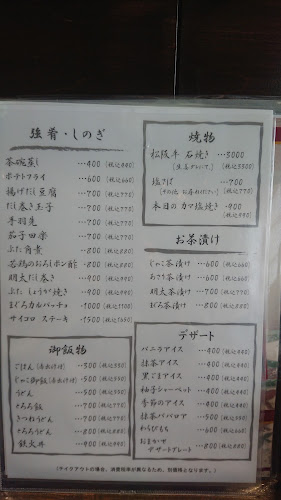 強肴・しのぎ
茶碗蒸し …400(税込440)
ポテトフライ …600(税込660)
揚げだし豆腐 …700(税込770)
だし巻き玉子 …700(税込770)
手羽先 …700(税込770)
茄子田楽 …700(税込770)
ぶた角煮 …800(税込880)
若鶏のおろしポン酢 …800(税込880)
明太だし巻き …900(税込990)
ぶたしょうが焼き …900(税込990)
まぐろカルパッチョ …1000(税込1100)
サイコロステーキ …1500(税込1650)
御飯物
ごはん …300(税込330)
じゃこ御飯 …500(税込550)
うどん …500(税込550)
とろろ飯 …700(税込770)
きつねうどん …700(税込770)
とろろうどん …800(税込880)
鉄火丼 …900(税込990)
焼物
松阪牛 石焼き …3000
(税込3300)
塩さば …700
(税込770)
本日のカマ塩焼き …900
(税込990)
お茶漬け
じゃこ茶漬け …600(税込660)
あさり茶漬け …600(税込660)
明太茶漬け …700(税込770)
まぐろ茶漬け …800(税込880)
デザート
バニラアイス …400(税込440)
抹茶アイス …400(税込440)
黒ごまアイス …400(税込440)
柚子シャーベット …400(税込440)
季節のアイス …400(税込440)
抹茶ババロア …500(税込550)
わらびもち …600(税込660)
おまかせ
デザートプレート …800(税込880)
(テイクアウトの場合、消費税率が異なるため、別価格となります。)